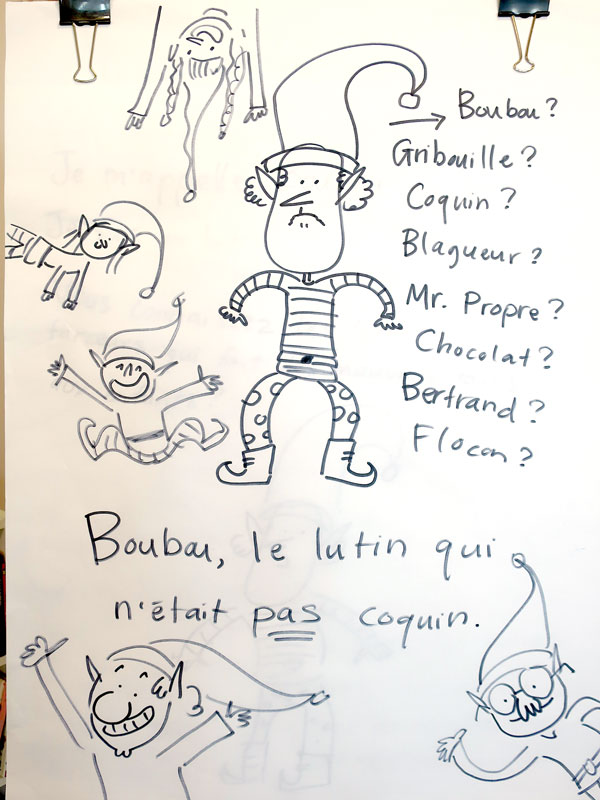 Boubou?
Gribouille?
Coquin?
Blagueur?
Mr. Propre?
Chocolat?
Bertrand?
Flocon?
Boubou, le lutin qui
n'était pas coquin.
Je m'appelle